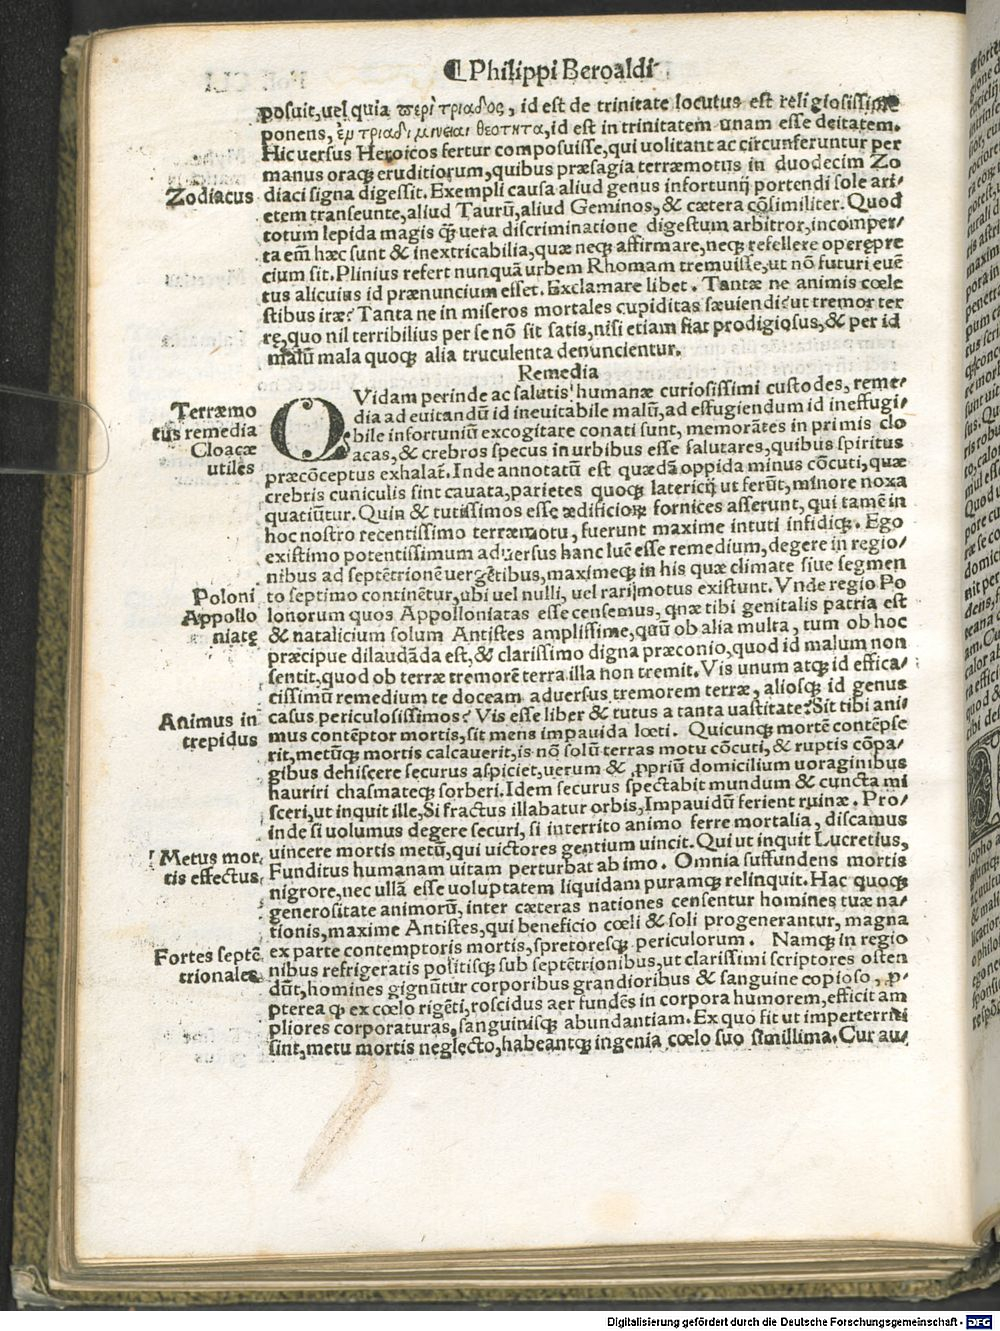 ¶ Philippi Beroaldi
posuit, uel quia ϖερὶ τριαδος, id est de trinitate locutus est religiosissime
ponens, ἐμ τριαδι μινειαι θεοτητα, id est in trinitatem unam esse deitatem.
Hic uersus Heroicos fertur composuisse, qui uolitant ac circunferuntur per
manus oraq; eruditiorum, quibus præsagia terræmotus in duodecim Zo
Zodiacus
diaci signa digessit. Exempli causa aliud genus infortunij portendi sole ari/
etem transeunte, aliud Taurū, aliud Geminos, & cætera cōsimiliter. Quod
totum lepida magis q̄ uera discriminatione digestum arbitror, incomper/
ta em̄ hæc sunt & inextricabilia, quæ neq; affirmare, neq; refellere operępre
cium sit. Plinius refert nunquā urbem Rhomam tremuisse, ut nō futuri euē
tus alicuius id prænuncium esset. Exclamare libet. Tantæ ne animis cœle
stibus iræ? Tanta ne in miseros mortales cupiditas sæuiendi? ut tremor ter
rę, quo nil terribilius per se nō sit satis, nisi etiam fiat prodigiosus, & per id
malū mala quoq; alia truculenta denuncientur.
Remedia
Terræmo
tus remedia
Cloacæ
utiles
QVidam perinde ac salutis humanæ curiosissimi custodes, reme/
dia ad euitandū id ineuitabile malū, ad effugiendum id ineffugi/
bile infortuniū excogitare conati sunt, memorātes in primis clo
acas, & crebros specus in urbibus esse salutares, quibus spiritus
præcōceptus exhalat̄. Inde annotatū est quædā oppida minus cōcuti, quæ
crebris cuniculis sint cauata, parietes quoq; latericij ut ferūt, minore noxa
quatiūtur. Quin & tutissimos esse ædificiorꝝ fornices asserunt, qui tamē in
hoc nostro recentissimo terræmotu, fuerunt maxime intuti infidiq;. Ego
existimo potentissimum aduersus hanc luē esse remedium, degere in regio/
nibus ad septētrionē uergētibus, maximeq; in his quæ climate siue segmen
Poloni
Appollo
niatę
to septimo continētur, ubi uel nulli, uel rari motus existunt. Vnde regio Po
lonorum quos Appolloniatas esse censemus, quæ tibi genitalis patria est
& natalicium solum Antistes amplissime, quū ob alia multa, tum ob hoc
præcipue dilaudāda est, & clarissimo digna præconio, quod id malum non
sentit, quod ob terræ tremorē terra illa non tremit. Vis unum atq; id effica/
cissimū remedium te doceam aduersus tremorem terræ, aliosq; id genus
Animus in
trepidus
casus periculosissimos? Vis esse liber & tutus a tanta uastitate? Sit tibi ani/
mus contēptor mortis, sit mens impauida lœti. Quicunq; mortē contēpse
rit, metūq; mortis calcauerit, is nō solū terras motu cōcuti, & ruptis cōpa/
gibus dehiscere securus aspiciet, uerum & ꝓpriū domicilium uoraginibus
hauriri chasmateq; sorberi. Idem securus spectabit mundum & cuncta mi
sceri, ut inquit ille, Si fractus illabatur orbis, Impauidū ferient ruinæ. Pro/
inde si uolumus degere securi, si interrito animo ferre mortalia, discamus
Metus mor
tis effectus
uincere mortis metū, qui uictores gentium uincit. Qui ut inquit Lucretius,
Funditus humanam uitam perturbat ab imo. Omnia suffundens mortis
nigrore, nec ullā esse uoluptatem liquidam puramq; relinquit. Hac quoq;
generositate animorū, inter cæteras nationes censentur homines tuæ na/
tionis, maxime Antistes, qui beneficio cœli & soli progenerantur, magna
Fortes septē
trionales
ex parte contemptoris mortis, spretoresq; periculorum. Namq; in regio
nibus refrigeratis politisq; sub septētrionibus, ut clarissimi scriptores osten
dūt, homines gignūtur corporibus grandioribus & sanguine copioso, ꝓ/
pterea q̄ ex cœlo rigēti, roscidus aer fundēs in corpora humorem, efficit am
pliores corporaturas, sanguinisq; abundantiam. Ex quo fit ut imperterriti
sint, metu mortis neglecto, habeantq; ingenia cœlo suo simillima. Cur au/
Digitalisierung gefördert durch die Deutsche Forschungsgemeinschaft - DFG